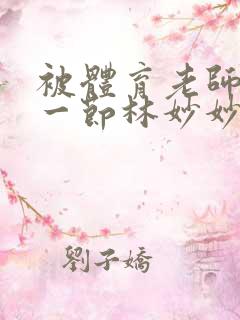 被體育老師
一節林妙妙
劉子嬌